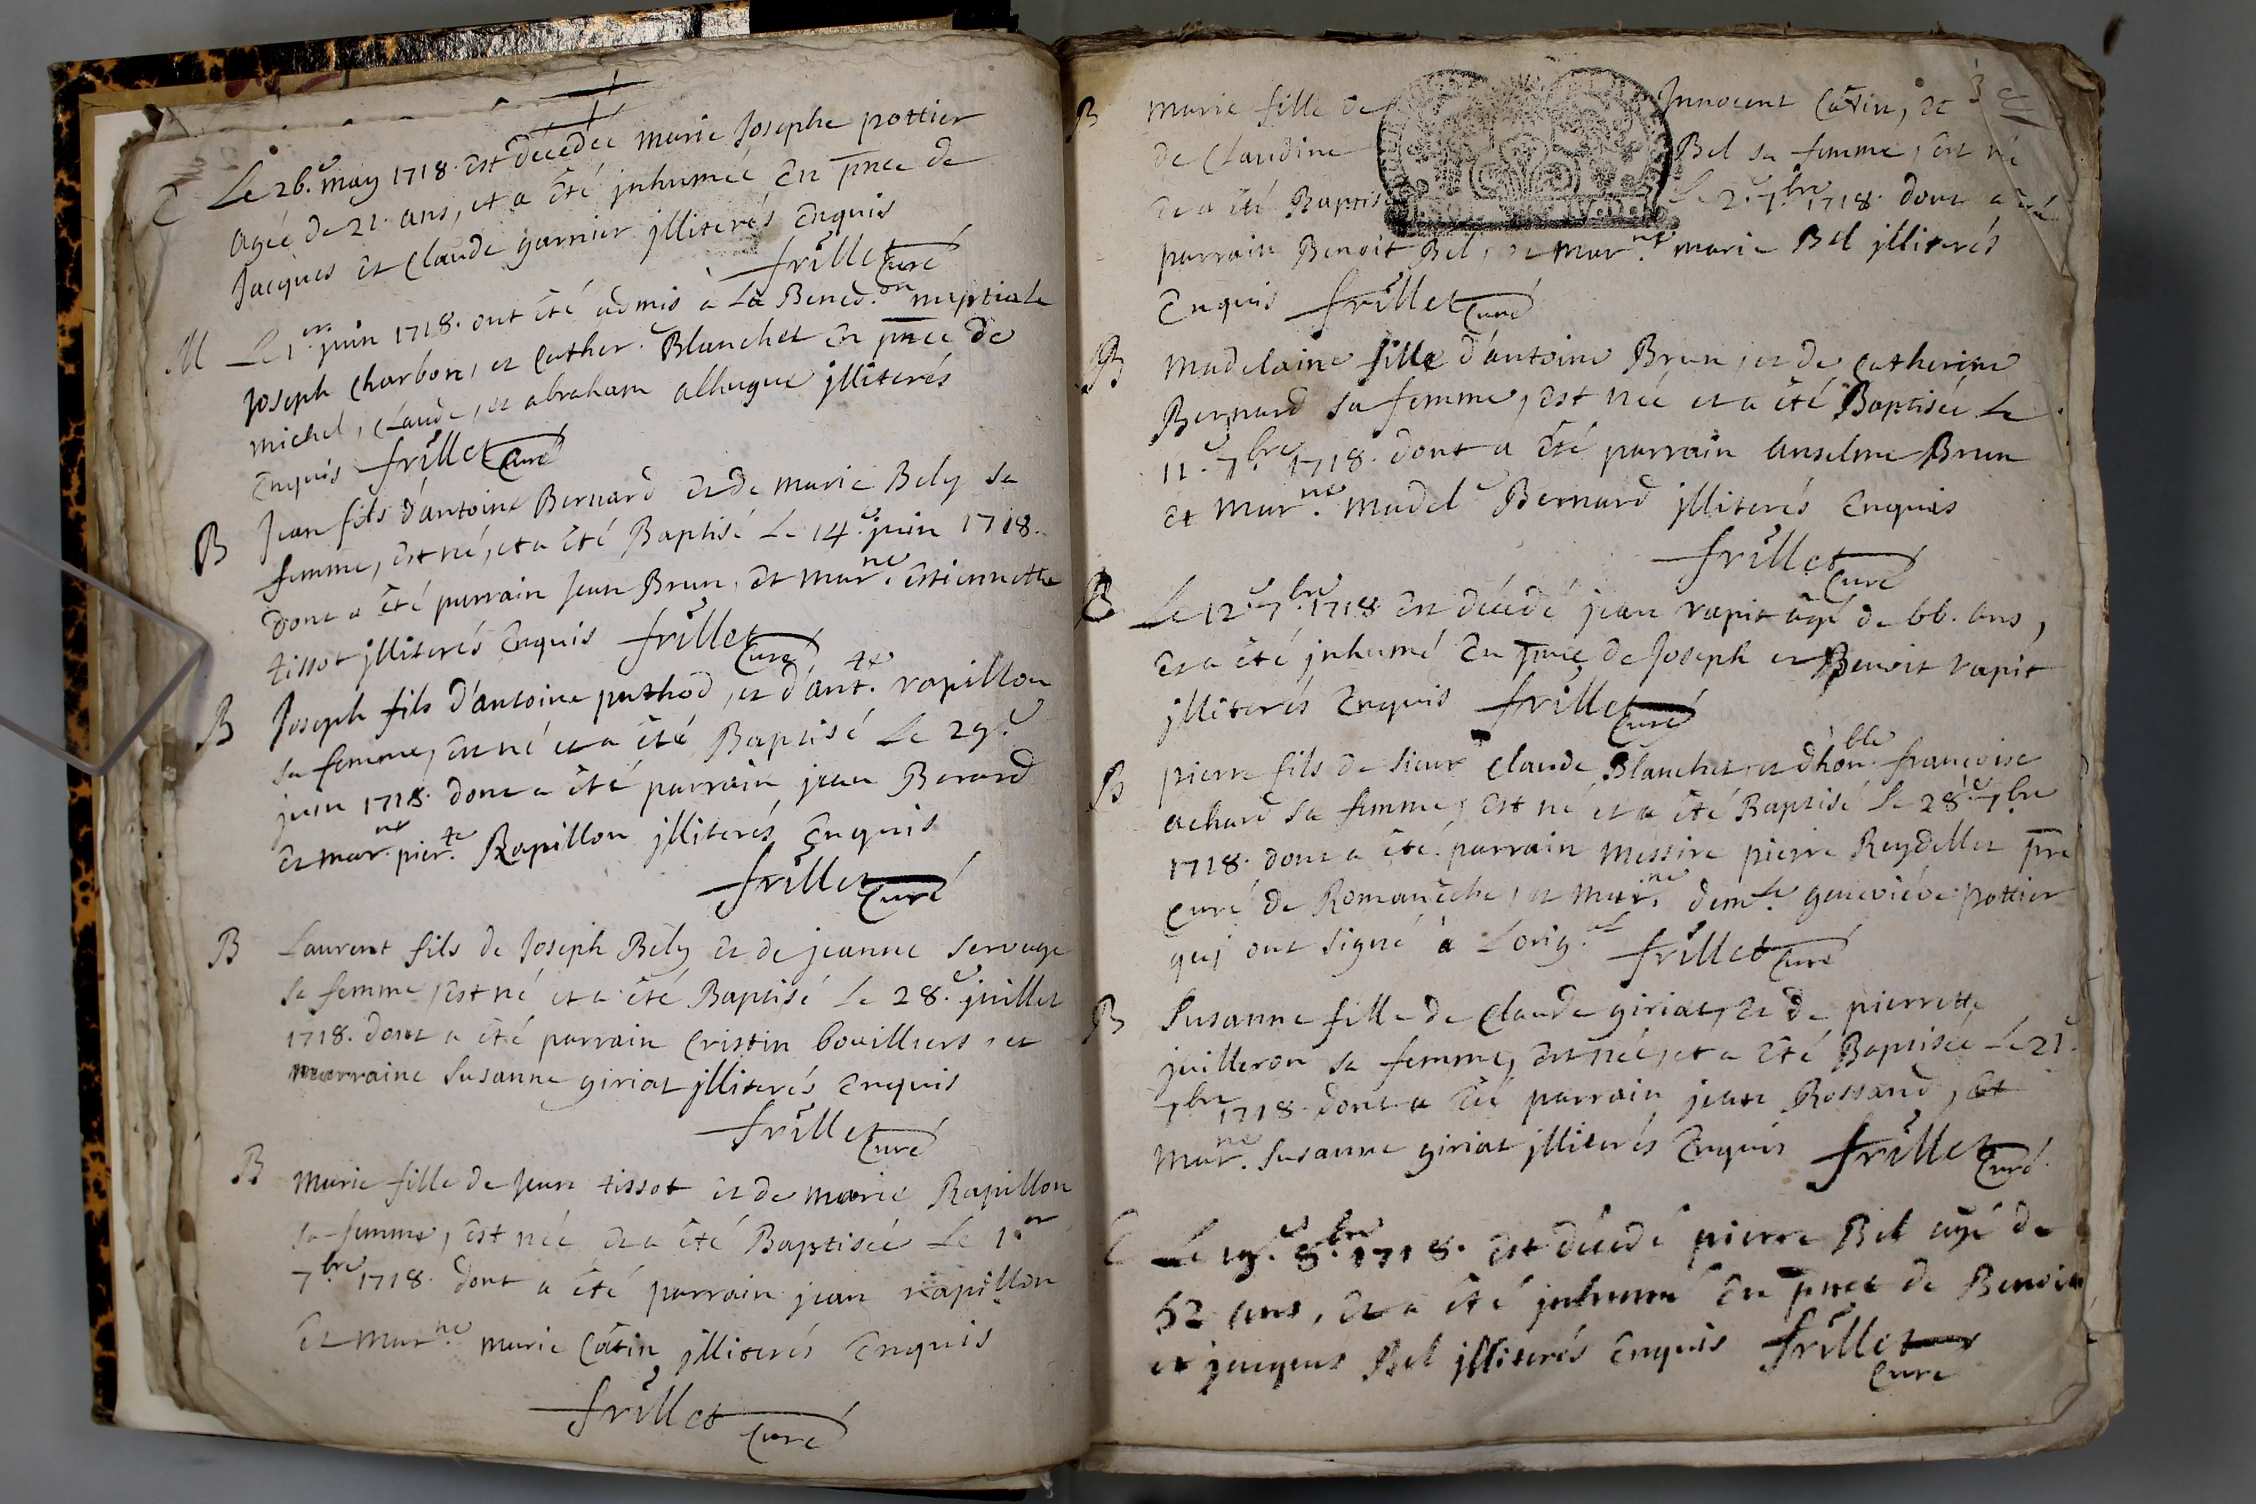 C Le 26.e may 1718. est decedée marie Josephe pottier
agée de 21. ans, et a êté jnhumée en pnce de
Jacques et Claude garnier jlliterés enquis
frillet Curé
M Le 1.er juin 1718. ont êté admis à La Bened.on nuptiale
Joseph Charbon, et Cather. Blanchet en pnce de
michel, Claude, et abraham alhugue jlliterés
enquis frillet Curé
B Jean fils d'antoine Bernard et de marie Bely sa
femme, est né, et a êté Baptisé Le 14.e juin 1718.
dont a êté parrain Jean Brun, et mar.ne estiennette
tissot jlliterés enquis frillet Curé
B Joseph fils d'antoine puthod, et d'ant.te rapillon
sa femme, est né et a êté Baptisé Le 29.e
juin 1718. dont a êté parrain jean Berard
et mar.ne pier.te Rapillon jlliterés enquis
frillet Curé
B Laurent fils de Joseph Bely et de jeanne servage
sa femme, est né et a êté Baptisé Le 28.e juillet
1718. dont a êté parrain Cristin bouilliers, et
marraine Susanne giriat jlliterés enquis
frillet Curé
B Marie fille de Jean tissot et de marie Rapillon
sa femme, est née et a êté Baptisée Le 1.er
7.bre 1718. dont a êté parrain jean rapillon
et mar.ne marie Catin jlliterés enquis
frillet Curé
B Marie fille de Innocent Catin, et 3
de Claudine Bel sa femme, est né
et a êté Baptisé Le 2.e 7.bre 1718. dont a été
parrain Benoit Bel, et mar.ne marie Bel jlliterés
enquis frillet Curé
B Madelaine fille d'antoine Brun, et de Catherine
Bernard sa femme, est née et a êté Baptisée Le
11.e 7.bre 1718. dont a êté parrain anselme Brun
et mar.ne madel.e Bernard jlliterés enquis
frillet Curé
Le 12.e 7.bre 1718 est décédé jean rapit agé de 66. ans,
et a êté jnhumé en pnce de Joseph et Benoit rapit
jlliterés enquis frillet Curé
B pierre fils de sieur Claude Blanchet et d'hon.ble françoise
achard sa femme, est né et a êté Baptisé Le 28.e 7.bre
1718. dont a êté parrain messire pierre Reydellet pre
Curé de Romanêche, et mar.ne dem.le geneviéve pottier
qui ont signé à L'orig.al frillet Curé
B Susanne fille de Claude giriat, et de pierrette
juilleron sa femme, est née, et a êté Baptisée Le 21.e
7.bre 1718. dont a êté parrain jean Rossand, et
mar.ne Susanne giriat jlliterés enquis frillet Curé
C Le 19.e 8.bre 1718. est décedé pierre Bel agé de
52 ans, et a êté jnhumé en pnce de Benoit
et jacques Bel jlliterés enquis frillet
Curé